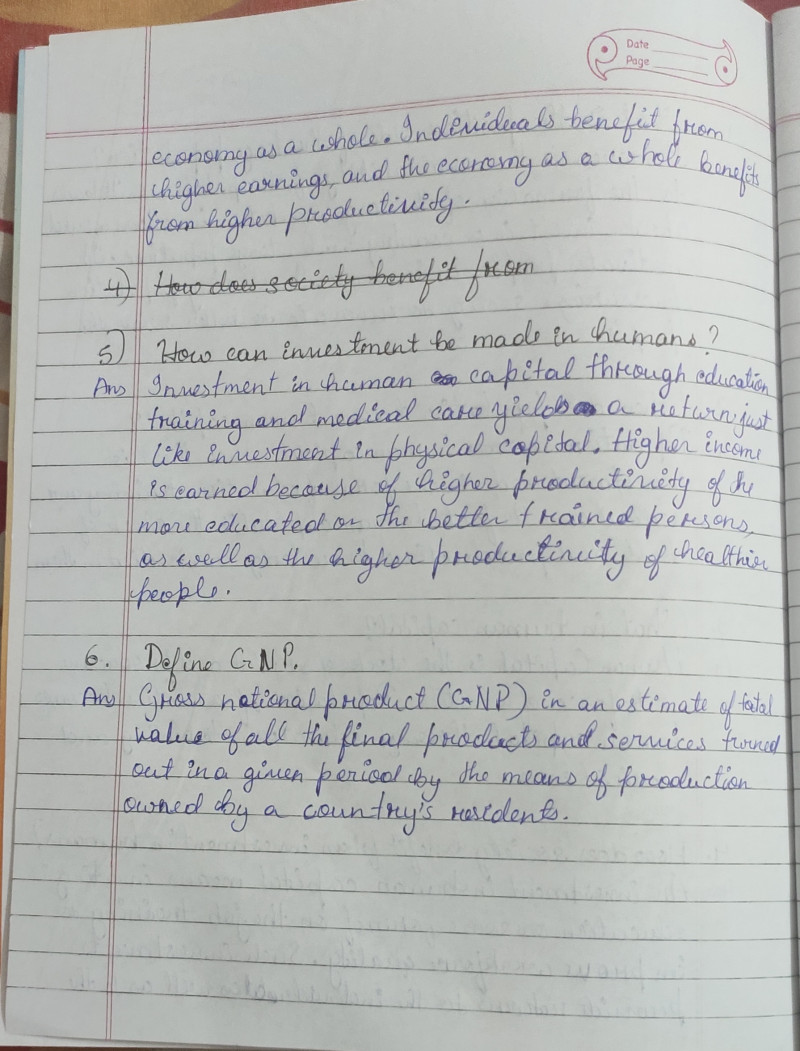 Date
Page
economy as a whole. Individuals benefit from
higher earnings, and the economy as a whole benefits
from higher productivity.
4) How does society benefit from
5) How can investment be made in humans?
Ans Investment in human capital through education
training and medical care yields a return just
like investment in physical capital. Higher income
is earned because of higher productivity of the
more educated or the better trained persons,
as well as the higher productivity of healthier
people.
6. Define GNP.
Ans Gross national product (GNP) in an estimate of total
value of all the final products and services turned
out in a given period by the means of production
owned by a country's residents.